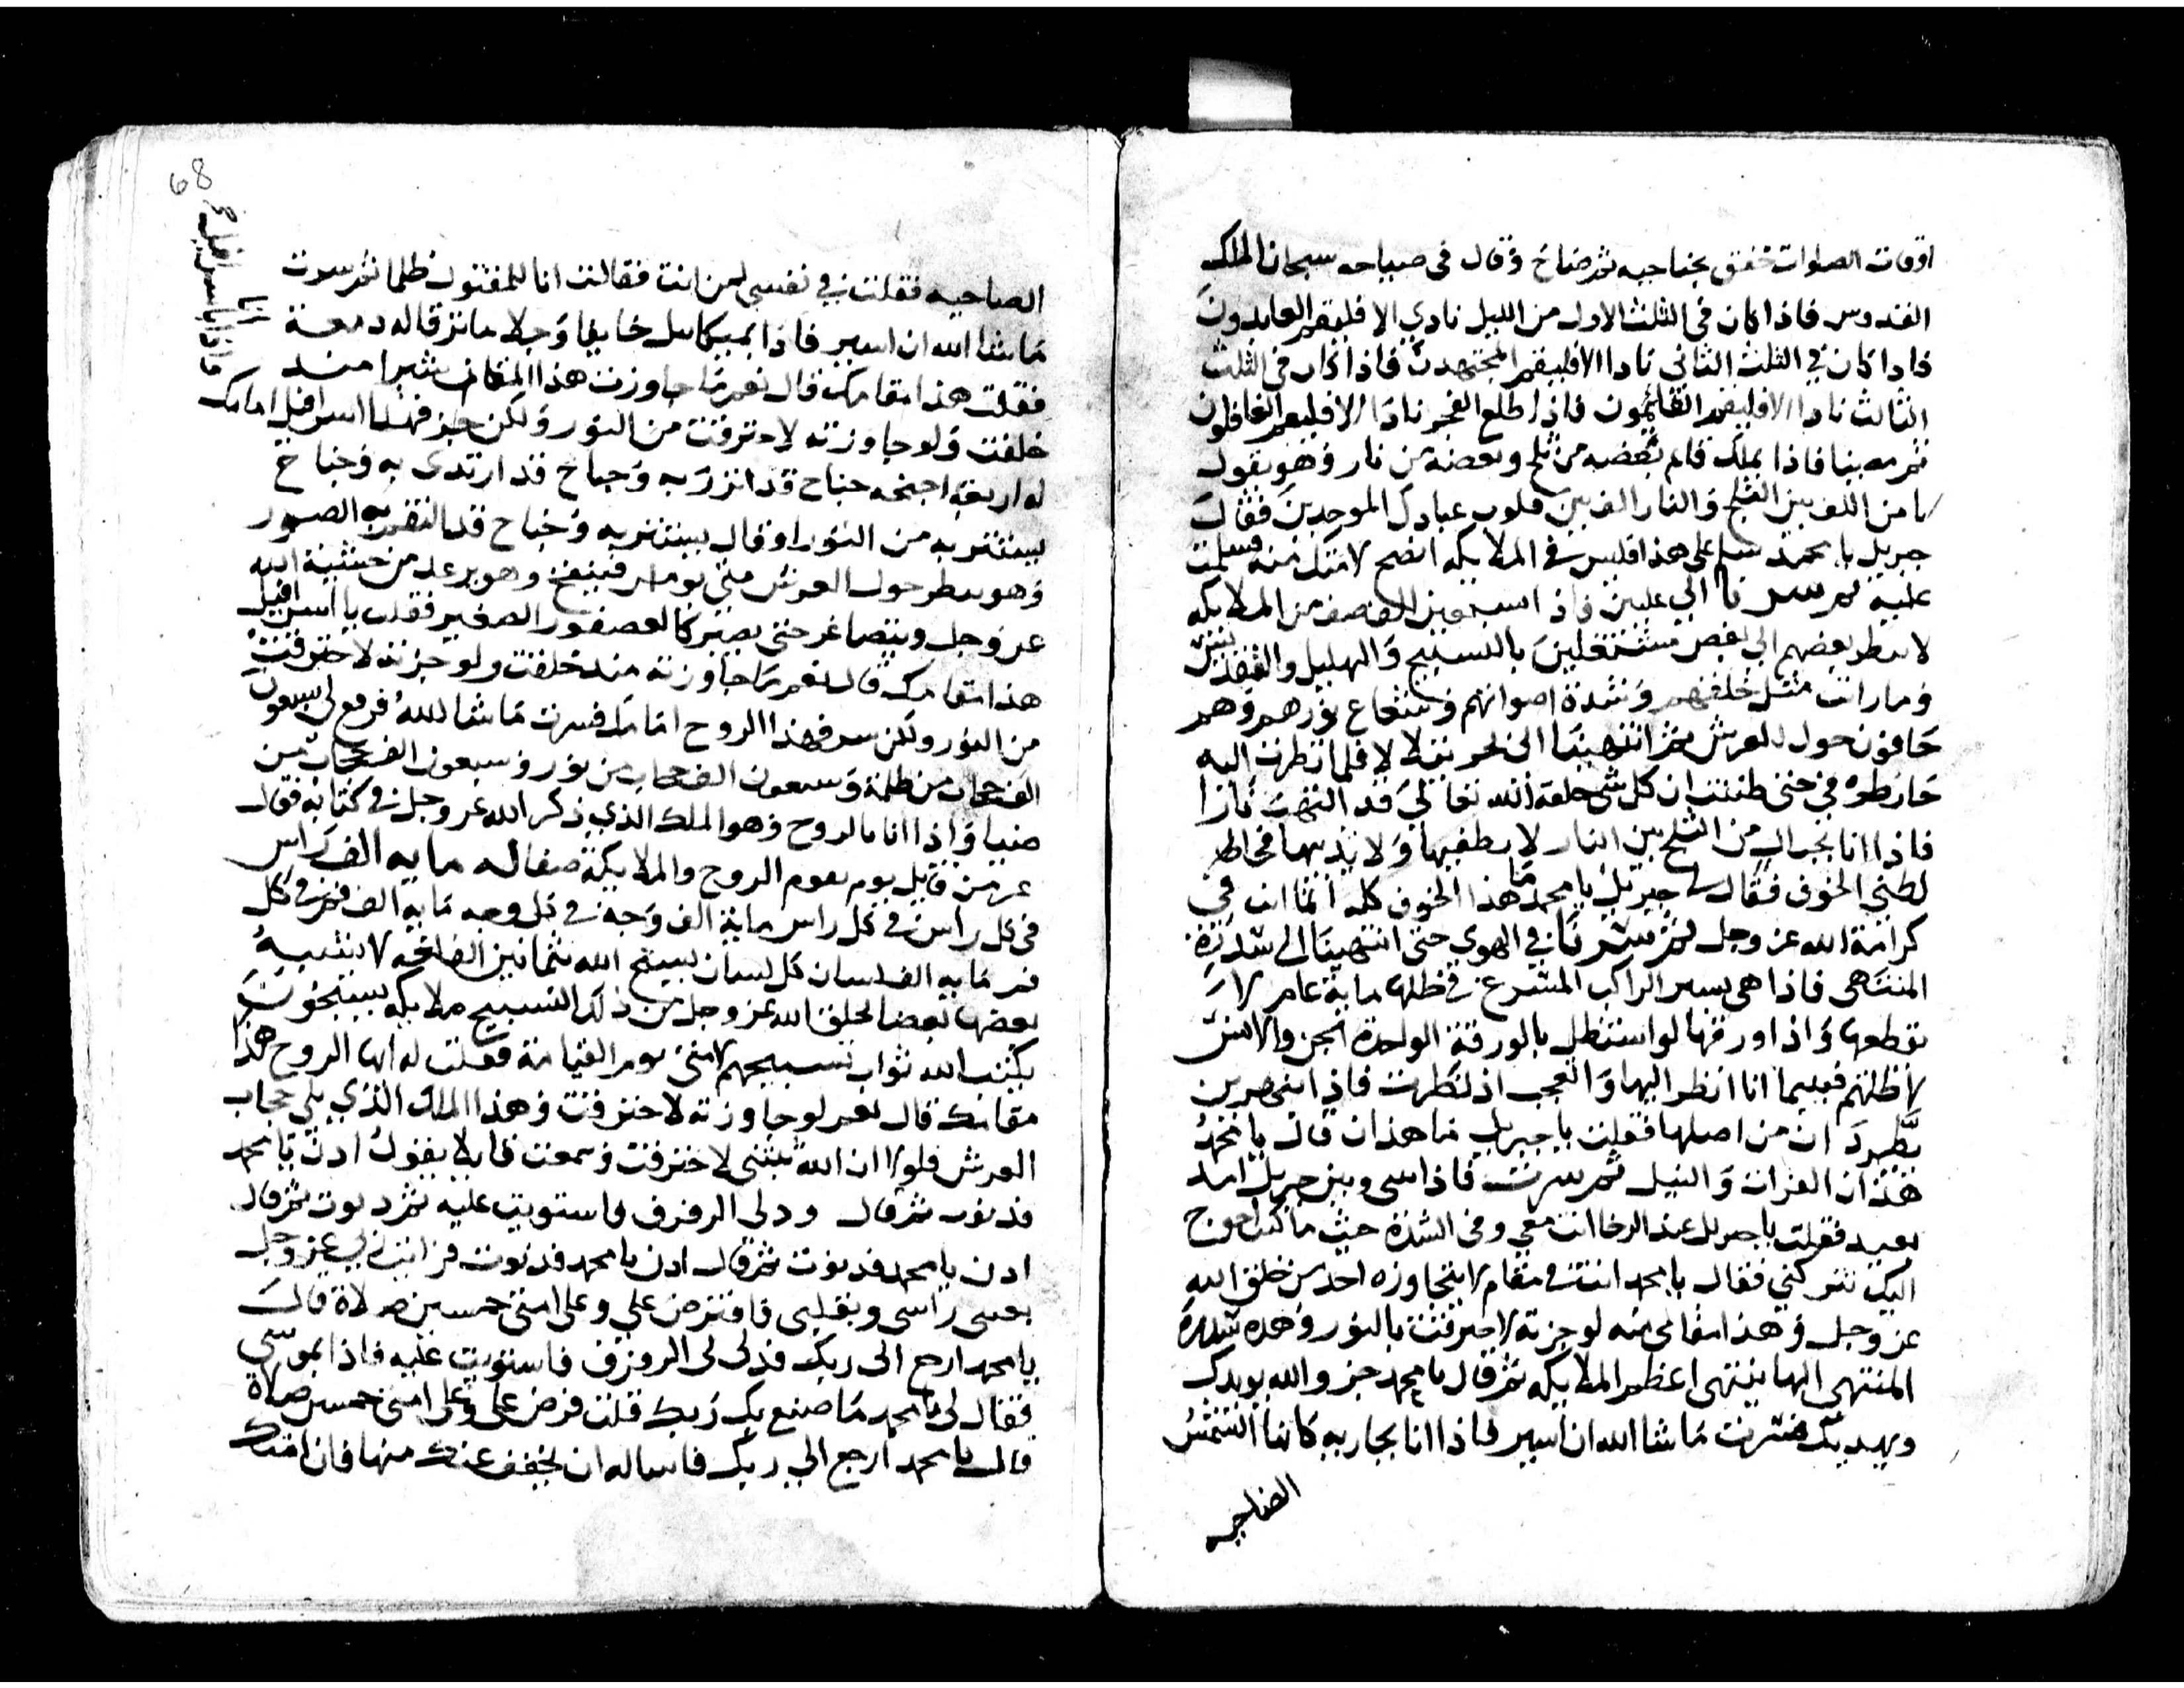 اوقات الصلوات خفق بجناحيه ثم صاح وقال فى صياحه سبحان الملك
القدوس فاذا كان فى الثلث الاول من الليل نادي الا فليقم العابدون
فاذا كان في الثلث الثاني نادا الا فليقم المجتهدين فاذا كان فى الثلث
الثالث نادا الا فليقم القائمون فاذا طلع الفجر نادا الا فليقم الغافلون
ثم مر بنا فاذا بملك قايم بعضه من ثلج وبعضه من نار وهو يقول
يا من الف بين الثلج والنار الف بين قلوب عبادك الموحدين فقال
جبريل يا محمد سلم على هذا فليس في الملايكه انصح لامتك منه فسلمت
عليه ثم سرنا الي عليين فاذا من الملايكه
لا ينظر بعضهم الي بعض مشتغلين بالتسبيح والهليل والتقديس
وما رات مثل خلقهم وشدة اصواتهم وشعاع نورهم وهم
حافون حول العرش ثم انتهينا الى بحر فلما نظرت اليه
حتى ظننت ان كل شي خلقه الله تعالى قد التهب نارا
فاذا انا بجبال من الثلج بين النار لا يطفيها ولا يذيبها
الخوف فقال لي جبريل يا محمد ما هذا الخوف كله انما انت في
كرامة الله عز وجل ثم سرنا في الهوي حتى انتهينا الى سدرة
المنتهى فاذا هى يسير الراكب المسرع في ظلها ماية عام لا
يقطعها واذا ورقها لو استظل بالورقة الواحدة الجن والانس
لاظلتهم فبينما انا انظر اليها والعجب اذ نظرت فاذا بنهرين
يطردان من اصلها فقلت يا جبريل ما هذان قال يا محمد
هذان الفرات والنيل ثم سرت فاذا بينى وبين جبريل امد
بعيد فقلت يا جبريل عند الرخا انت معي وفى الشدة حيث ما كنت احوج
اليك تتركني فقال يا محمد انت في مقام لا يتجاوزه احد من خلق الله
عز وجل وهذا مقامى منه لو جزته لاحترقت بالنور وهذه سدرة
المنتهى اليها ينتهى اعظم الملايكه ثم قال يا محمد جز والله يويدك
ويهديك فسرت ما شا الله ان اسير فاذا انا بجاريه كانها الشمس
الضاحيه
الضاحيه فقلت في نفسى لمن انت فقالت انا للمقتول ظلما ثم سرت
ما شا الله ان اسير فاذا بميكاييل خايفا وجلا ما ترقا له دمعة
فقلت هذا مقامك قال نعم ما جاوزت هذا المقام شبرا منذ
خلقت ولو جاوزته لاحترقت من النور ولكن جز فهذا اسرافيل امامك
فاذا انا باسرافيل
له اربعة اجنحه جناح قد اتزر به وجناح قد ارتدى به وجناح
يستتر به من النور او قال يستتر به وجناح قد التقم به الصور
وهو ينظر حول العرش متى يومر فينفخ وهو يرعد من خشية الله
عز وجل ويتصاغر حتى يصير كالعصفور الصغير فقلت يا اسرافيل
هذا مقامك قال نعم ما جاوزته منذ خلقت ولو جزته لاحترقت
من النور ولكن سر فهذا الروح امامك فسرت ما شا الله فرفع لى سبعون
الف حجاب من ظلمة وسبعون الف حجاب من نور وسبعون الف حجاب من
ضيا واذا انا بالروح وهو الملك الذي ذكر الله عز وجل في كتابه فقال
عز من قايل يوم يقوم الروح والملايكة صفا له مايه الف راس
فى كل راس في كل راس ماية الف وجه في كل وجه مايه الف فم في كل
فم مايه الف لسان كل لسان يسبح الله بثمانين الف لغه لا تشبه
بعضها بعضا يخلق الله عز وجل من ذلك التسبيح ملايكه يسبحون
يكتب الله ثواب تسبيحهم لامتى يوم القيامة فقلت له ايها الروح هذا
مقامك قال نعم لو جاوزته لاحترقت وهذا الملك الذي يلي حجاب
العرش فلولا ان الله ثبتنى لاحترقت وسمعت قايلا يقول ادن يا محمد
فدنوت ثم قال ودلى الرفرف فاستويت عليه ثم دنوت ثم قال
ادن يا محمد فدنوت ثم قال ادن يا محمد فدنوت فرايت ربي عز وجل
بعينى راسى وبقلبى فافترض علي وعلى امتى خمسين صلاة قال
يا محمد ارجع الى ربك فدلى لى الرفرف فاستويت عليه فاذا بموسى
فقال لى يا محمد ما صنع بك ربك قلت فرض على وعلى امتى خمسين صلاة
قال يا محمد ارجع الي ربك فاساله ان يخفف عنك منها فان امتك
68